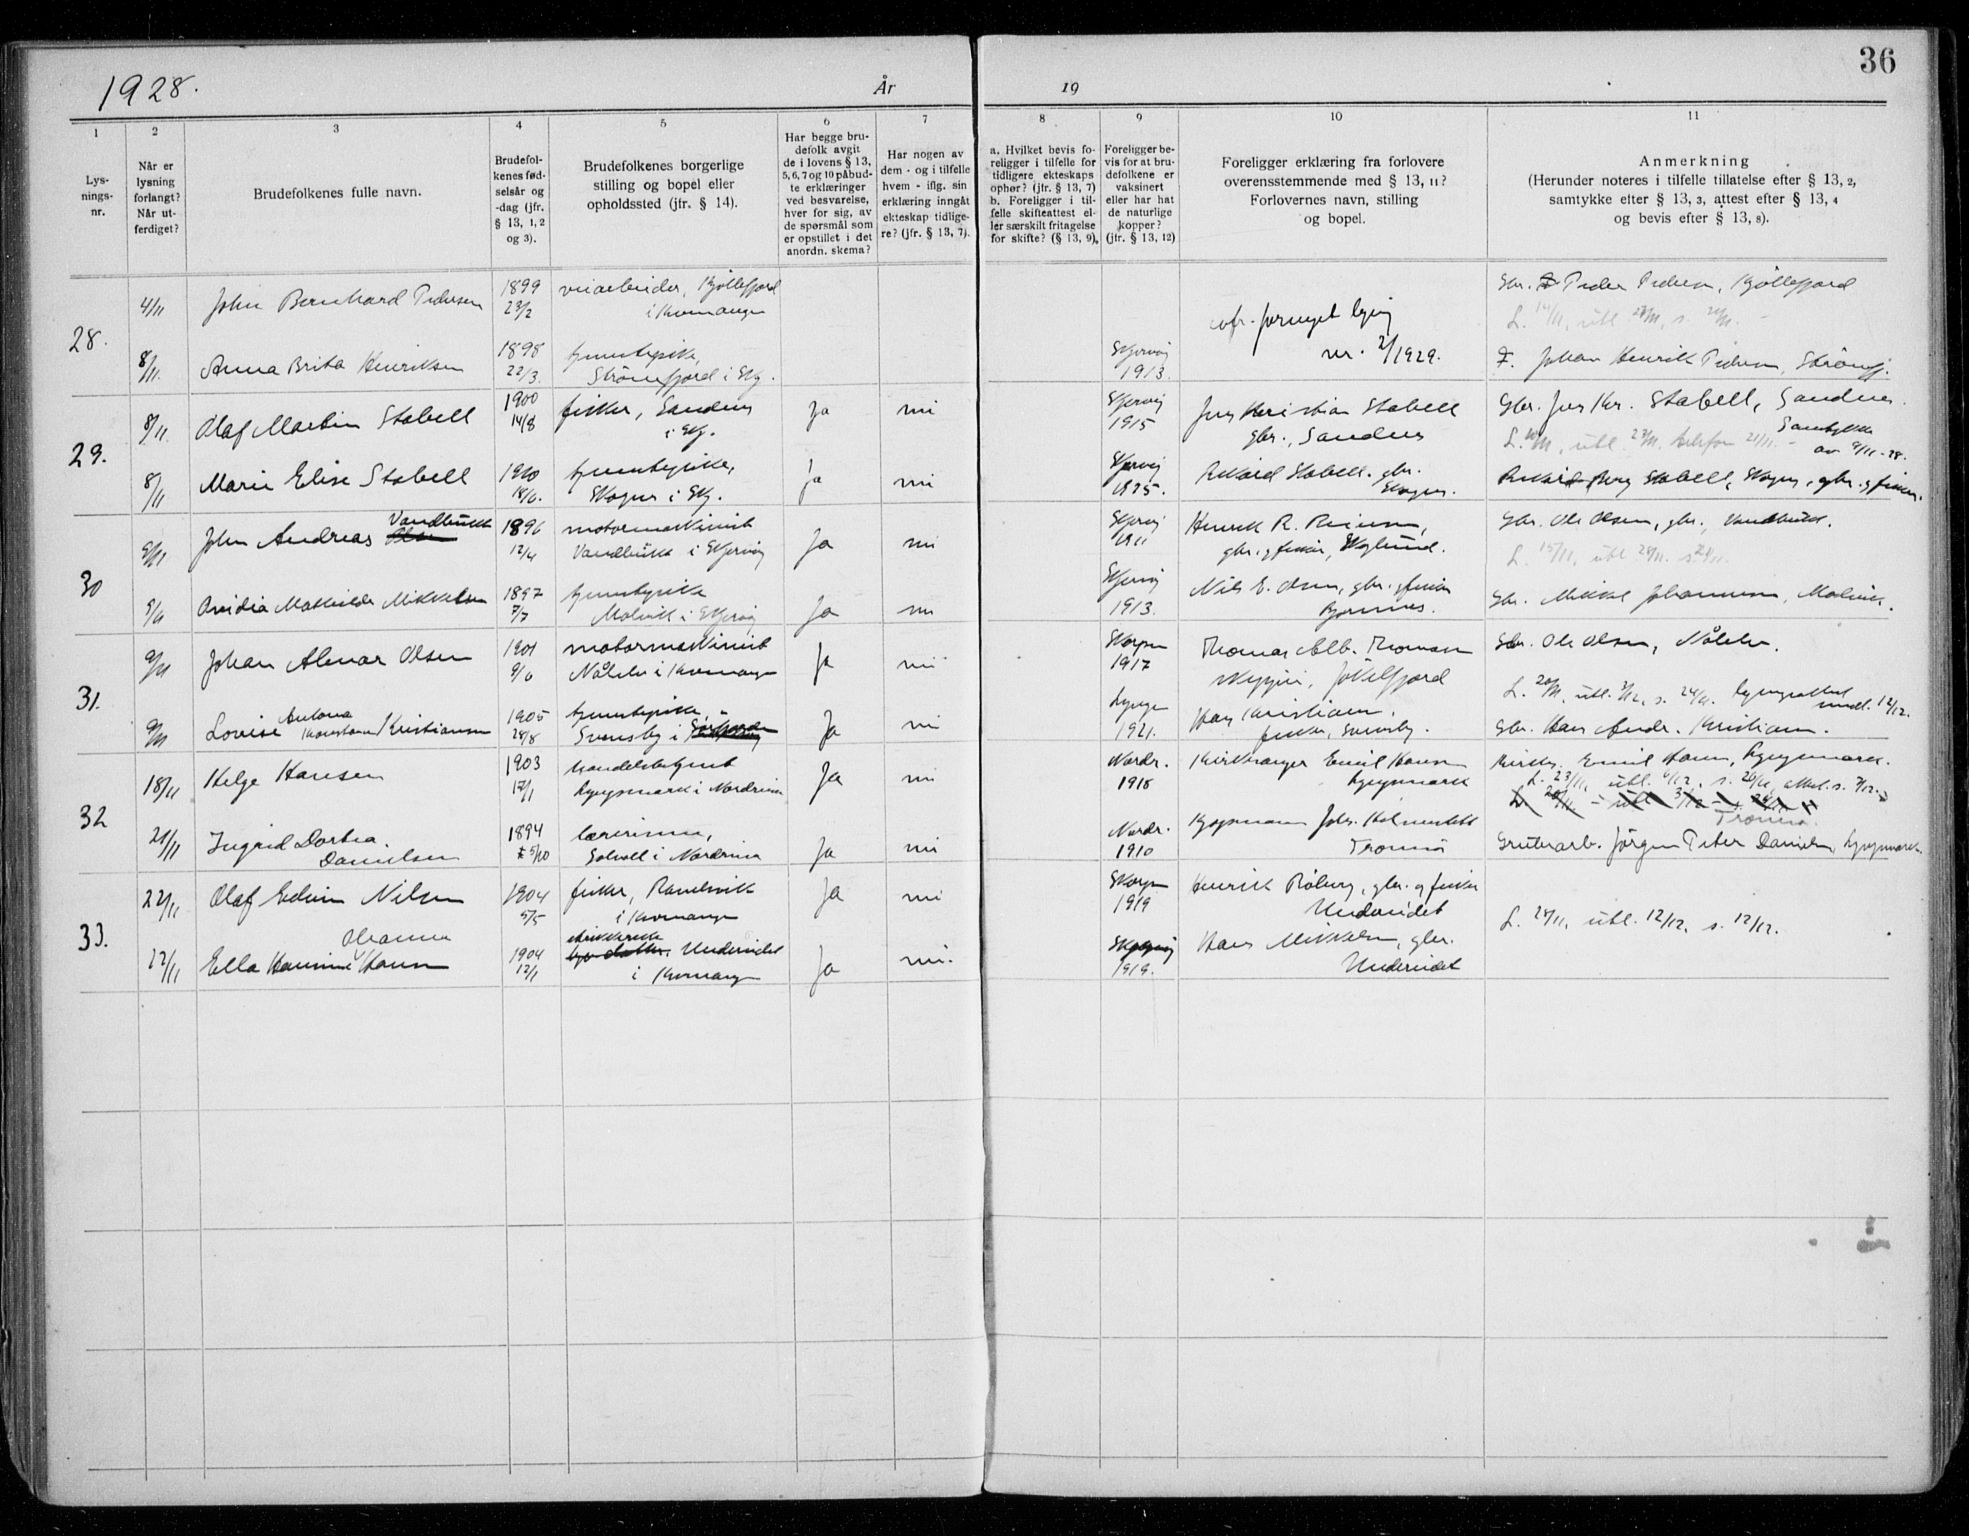 36
1928.
År
19
1
2
3
4
5
6
7
8
9
10
11
Lys-
nings-
nr.
Når er
lysning
forlangt?
Når ut-
ferdiget?
Brudefolkenes fulle navn.
Brudefol-
kenes fød-
selsår og
-dag (jfr.
§ 13, 1, 2
og 3).
Brudefolkenes borgerlige
stilling og bopel eller
opholdssted (jfr. § 14).
Har begge bru-
defolk avgit
de i lovens § 13,
5, 6, 7 og 10 påbud-
te erklæringer
ved besvarelse,
hver for sig, av
de spørsmål som
er opstillet i det
anordn. skema?
Har nogen av
dem - og i tilfelle
hvem - iflg. sin
erklæring inngåt
ekteskap tidlige-
re? (jfr. § 13, 7).
a. Hvilket bevis fo-
religger i tilfelle for
tidligere ekteskaps
ophør? (jfr. § 13, 7)
b. Foreligger i til-
felle skifteattest el-
ler særskilt fritagelse
for skifte? (§ 13, 9).
Foreligger be-
vis for at bru-
defolkene er
vaksinert
eller har hat
de naturlige
kopper?
(jfr. § 13, 12)
Foreligger erklæring fra forlovere
overensstemmende med § 13, 11?
Forlovernes navn, stilling
og bopel.
Anmerkning
(Herunder noteres i tilfelle tillatelse efter § 13, 2,
samtykke efter § 13, 3, attest efter § 13, 4
og bevis efter § 13, 8).
28.
4/11
John Bernhard Pedersen
1899
23/2
veiarbeider, Kjöllefjord
i Kvænangen
cfr. fornyet lysing
nr. 2/1929.
Gbr. Peder Pedersen, Kjöllefjord
8/11.
Anna Brita Henriksen
1898
22/3.
Strömfjord i Skj.
Skjervöy
1913.
Johan Henrik Pedersen, Strömfj.
29.
8/11.
Olaf Martin Stabell
1900
14/8
fisker, Sandnes
i Skj.
Ja
nei
Skjervöy
1915
Jens Kristian Stabell
gbr., Sandnes
Gbr. Jens Kr. Stabell, Sandnes.
Samtykke
av 8/11-28.
8/11
Marie Elise Stabell
1910
18/6.
tjenestepike,
Skognes i Skj.
Ja
nei
Skjervöy
1925.
Rikard Stabell. gbr.
Skognes.
Rikard Berg Stabell, Skognes, gbr. og fisker.
30
9/11
John Andreas Vandbukt
1896
12/4
motormaskinist
Vandbukt i Skjervöy
Ja
nei
Skjervöy
1911
Henrik R. Reiersen,
gbr. og fisker, Skoglund.
Gbr. Ole Olsen, gbr., Vandbukt.
Ovidia Mathilde Mikkelsen
1897
7/7
tjenestepike
Molvik i Skjervöy
Ja
nei
Skjervöy
1913.
Nils E. Olsen, gbr. og fisker
Gbr. Mikkel Johannesen, Molvik.
31.
9/11
Johan Almar Olsen
1901
9/6
motormaskinist
i Kvænangen
Ja
nei
Skorpen
1917
Thomas Alb. Thomassen
Jökelfjord
Gbr. Ole Olsen,
9/11
Lovise Antona Kristiansen
1905
28/8
tjenestepike,
Svensby i
Ja
nei
Lyngen
1921.
Hans Kristiansen,
fisker, Svensby.
Gbr. Hans Andr. Kristiansen.
32
18/11
Helge Hansen
1903
17/1
handelsbetjent
Lyngsmark i Nordreisa
Ja
nei
Nordr.
1918
Kirkesanger Emil Hansen
Lyngsmark
Kirkes. Emil Hansen, Lyngsmark.
L. 23/11, utl. 6/12, s. 26/11, attest. s. 7/12.
Tromsö.
21/11
Ingrid Dortea
Danielsen
1894
5/10
lærerinne,
Solvoll i Nordreisa
Ja
nei
Nordr.
1910
Tromsö
Grubearb. Jörgen Peter Danielsen, Lyngsmark.
33.
22/11
Olaf Edvin Nilsen
1904
5/5
fisker,
i Kvænangen
Ja
nei
Skorpen
1919
Henrik Röberg, gbr. og fisker
Undereidet
L. 24/11, utl. 12/12, s. 12/12.
22/11
Ella Hansine Johanna Hansen
1904
12/1
Undereidet
i Kvænangen
Ja
nei.
1919.
Hans Mikkelsen, gbr.
Undereidet